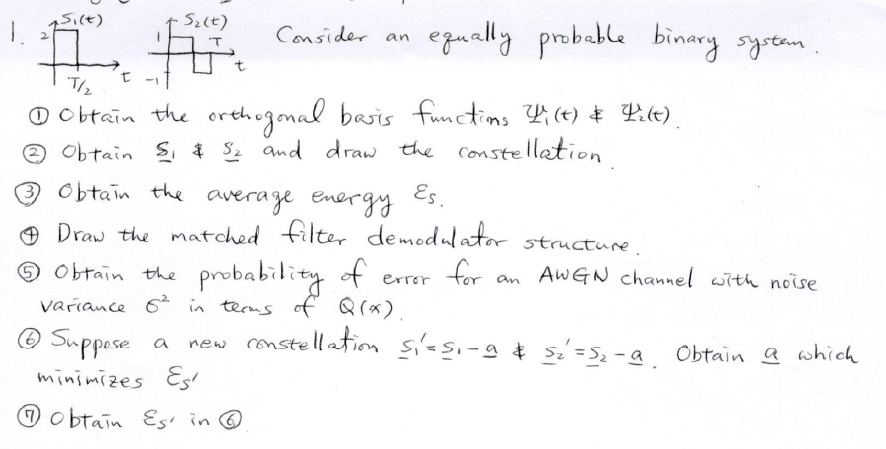 1. S₁(t) S₂(t) Consider an equally probable binary system.
2 1 T
T/2 t -1 t
① Obtain the orthogonal basis functions Ψ₁(t) & Ψ₂(t).
② Obtain S₁ & S₂ and draw the constellation.
③ Obtain the average energy Ɛs.
④ Draw the matched filter demodulator structure.
⑤ Obtain the probability of error for an AWGN channel with noise
variance σ² in terms of Q(x).
⑥ Suppose a new constellation S₁'=S₁-a & S₂'=S₂-a. Obtain a which
minimizes Ɛs'
⑦ Obtain Ɛs' in ⑥